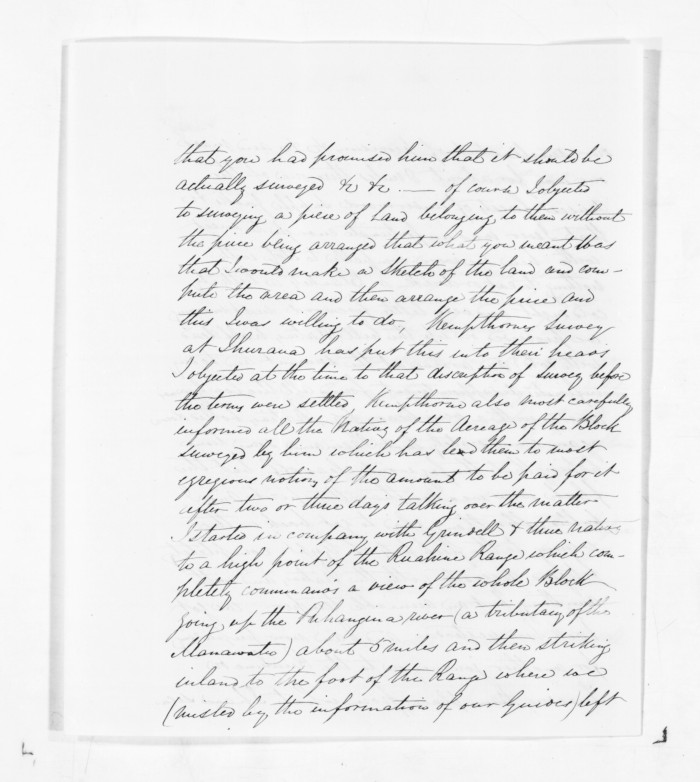 that you had promised him that it should be
actually surveyed &c &c — of course I objected
to surveying a piece of Land belonging to them without
the price being arranged that what you meant was
that I would make a Sketch of the land and com-
pute the area and then arrange the price and
this I was willing to do, Kempthornes Survey
at Ihuraua has put this into their heads
I objected at the time to that discription of survey before
the terms were settled, Kempthorne also most carefully
informed all the Natives of the Acreage of the Block
surveyed by him which has lead them to most
egregious notions of the amount to be paid for it
after two or three days talking over the matter
I started in company with Grindell & three natives
to a high point of the Ruahine Range which com-
pletely commands a view of the whole Block
going up the Pohangina river (a tributary of the
Manawatu) about 5 miles and then striking
inland to the foot of the Range where we
(misled by the information of our Guides) left